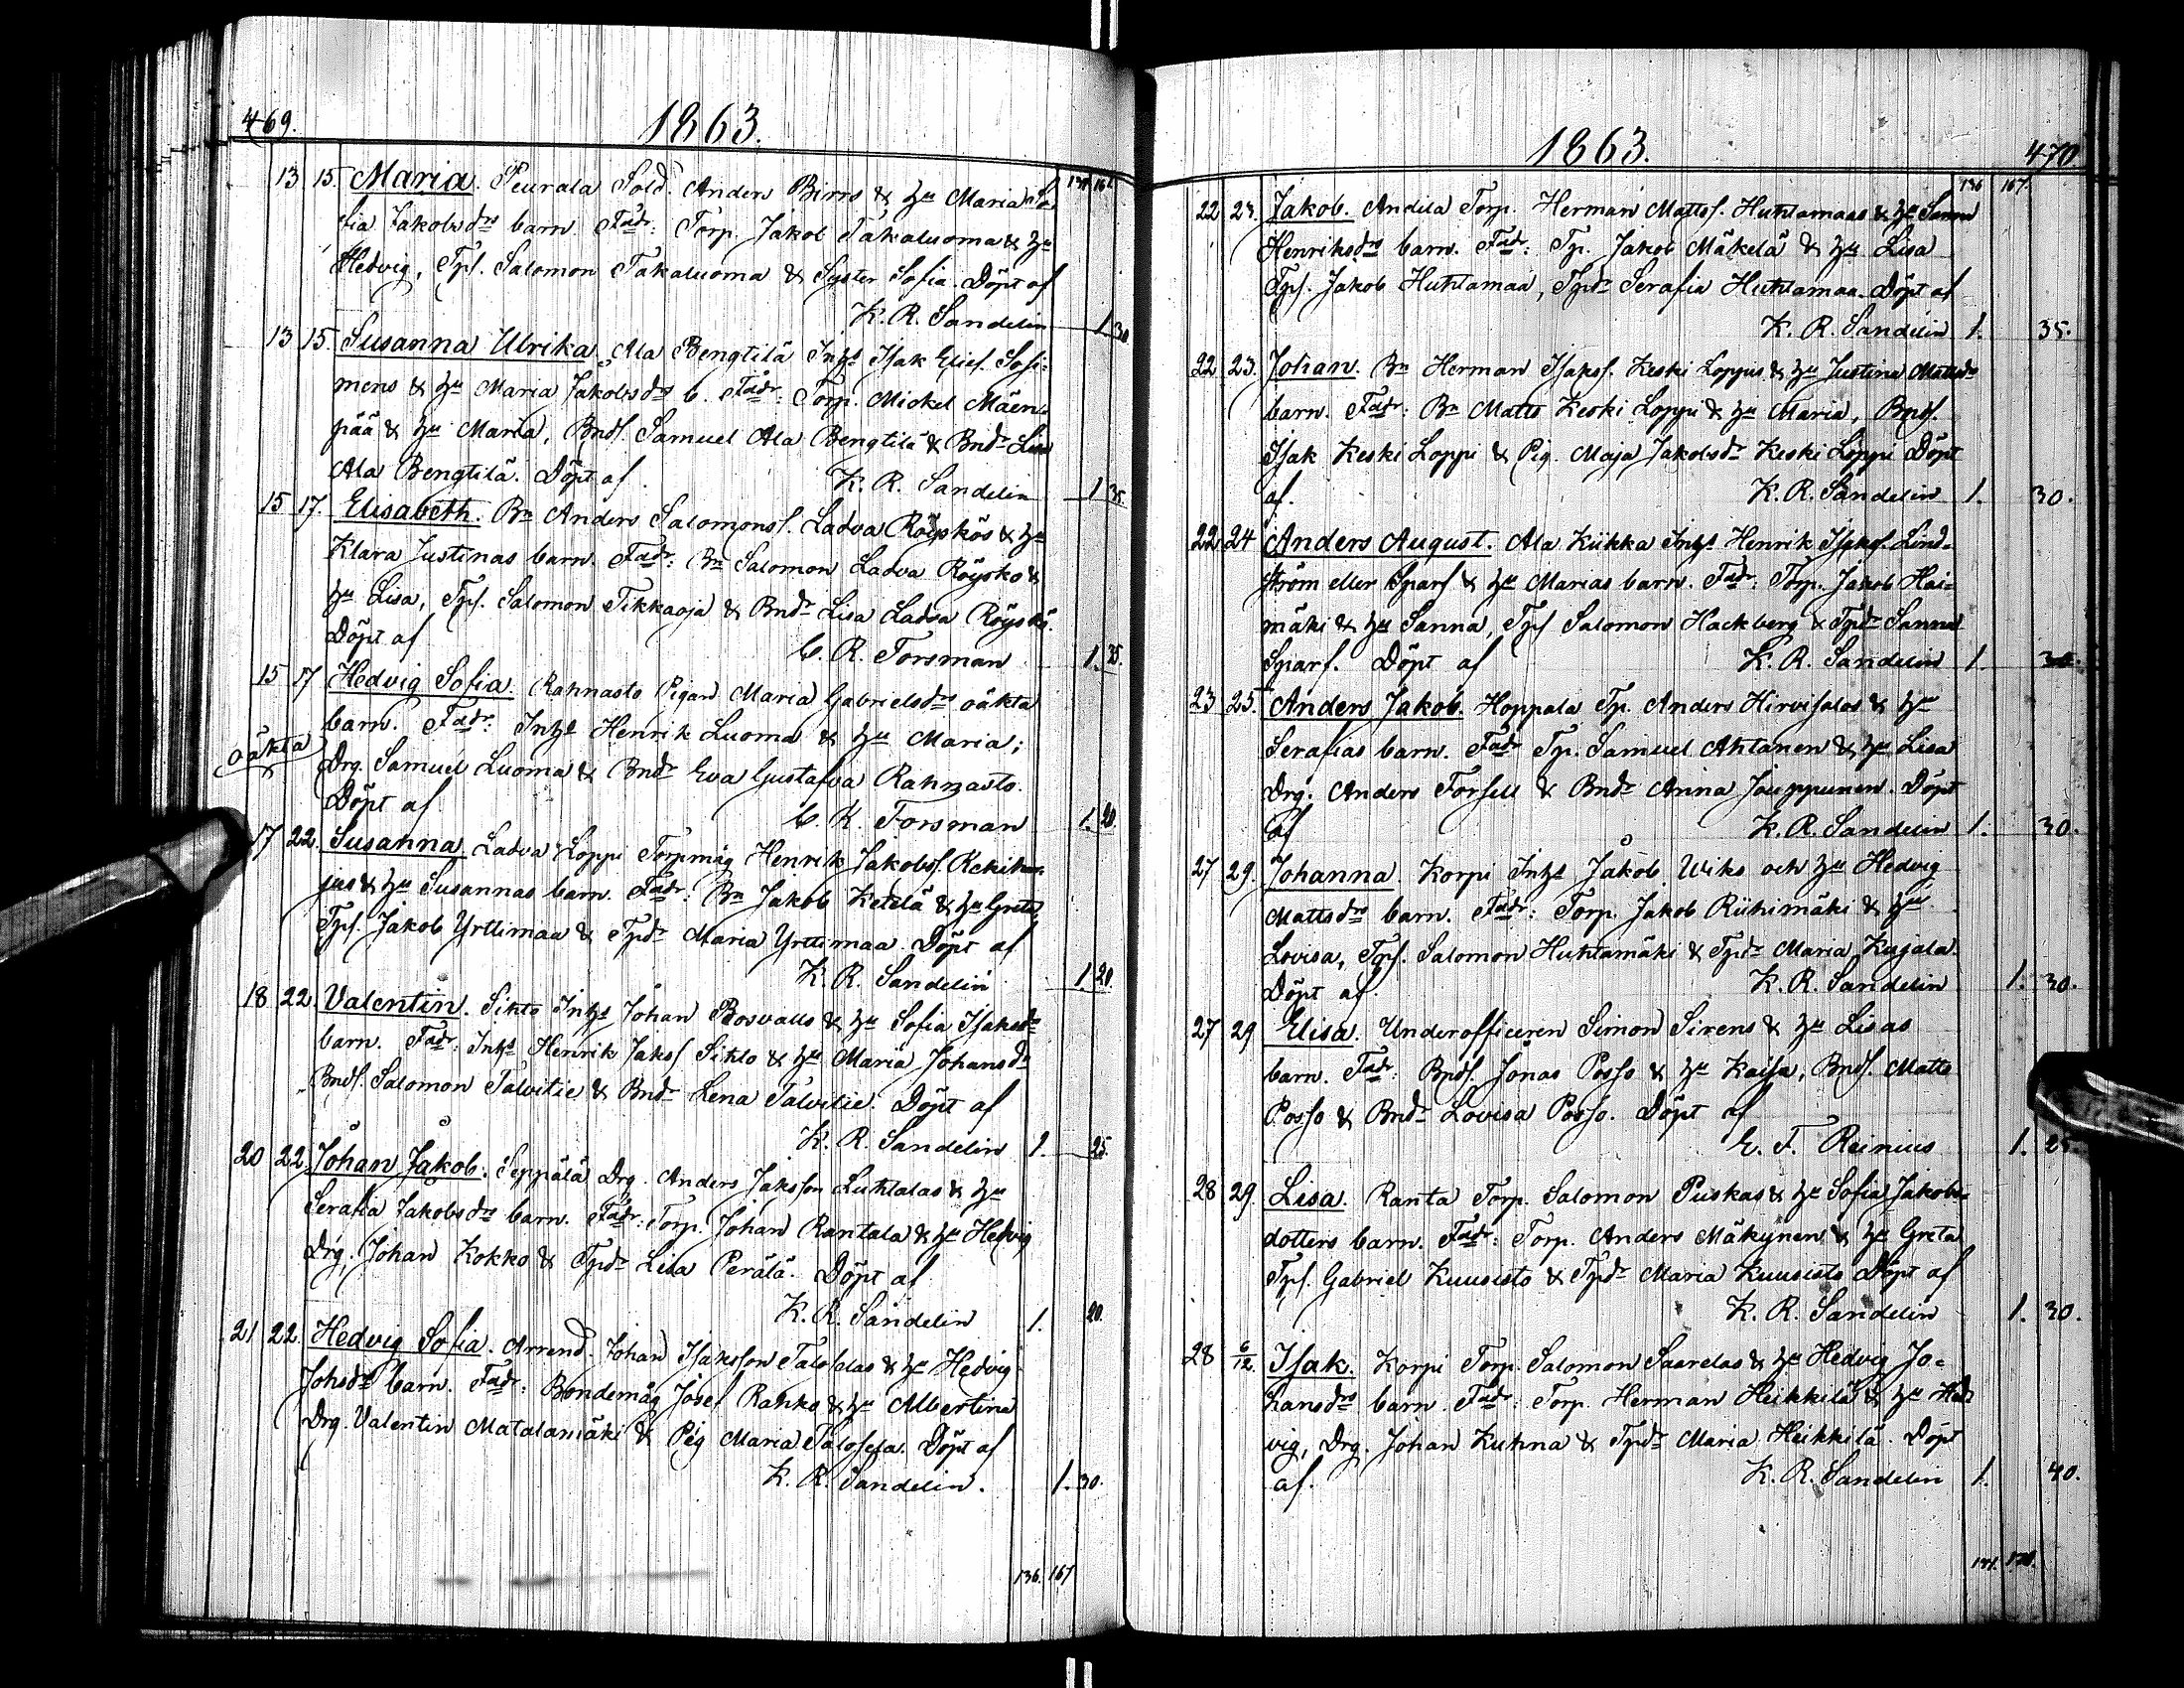 469.
1863.
13 15. Maria. Peurala Sold. Anders Birros & hu Maria So-
fia Jakobsdrs barn. Fadr: Torp. Jakob Takaluoma & hu
Hedvig, Tps. Salomon Takaluoma & Syster Sofia. Döpt af
K. R. Sandelin 1 30
13 15. Susanna Ulrika. Ala Bengtilä Inhs Isak Elies. Sosi-
mens & hu Maria Jakobsdrs b. Fadr: Torp. Mickel Mäen-
pää & hu Maria, Bnds. Samuel Ala Bengtilä & Bndr Lisa
Ala Bengtilä. Döpt af. K. R. Sandelin 1 35.
15 17. Elisabeth. Bn Anders Salomons. Ladva Röyskös & hu
Klara Justinas barn. Fadr: Bn Salomon Ladva Röyskö &
hu Lisa, Tps. Salomon Tikkaoja & Bndr Lisa Ladva Röyskö.
Döpt af C. R. Forsman 1. 35.
15 17 Hedvig Sofia. Rahnasto Pigan Maria Gabrielsdrs oäkta
barn. Fadr: Inhs Henrik Luoma & hu Maria;
oäkta
Drg. Samuel Luoma & Bndr Eva Gustafva Rahnasto.
Döpt af C. R. Forsman 1. 20.
17 22. Susanna. Ladva Loppi Torpmåg Henrik Jakobs.
jus & hu Susannas barn. Fadr: Bn Jakob Ketelä & hu Greta,
Tps. Jakob Yrttimaa & Tpdr Maria Yrttimaa. Döpt af
K. R. Sandelin 1. 20.
18 22. Valentin. Sikto Inhs Johan Rosvalls & hu Sofia Isaksdrs
barn. Fadr: Inhs Henrik Jaks. Sikto & hu Maria Johansdr
Bnds. Salomon Talvitie & Bndr Lena Talvitie. Döpt af
K. R. Sandelin 1. 25.
20 22. Johan Jakob. Seppälä Drg. Anders Jaksson Luhtalas & hu
Serafia Jakobsdrs barn. Fadr: Torp. Johan Rantala & hu Hedvig
Drg. Johan Kokko & Tpdr Lisa Perälä. Döpt af
K. R. Sandelin 1. 20.
21 22. Hedvig Sofia. Arrend. Johan Isaksson Taloselas & hu Hedvig
Johsdrs barn. Fadr: Bondemåg Josef Rahko & hu Albertina
Drg. Valentin Matalamäki & Pig Maria Talosela. Döpt af
K. R. Sandelin. 1. 30.
136. 167
1863.
470
136 167.
22 23. Jakob. Andila Torp. Herman Mattss. Huhtamaas & hu Sanna
Henriksdrs barn. Fadr: Tp. Jakob Mäkelä & hu Lisa
Tps. Jakob Huhtamaa, Tpdr Serafia Huhtamaa. Döpt af
K. R. Sandelin 1. 35.
22 23. Johan. Bn Herman Isakss. Keski Loppis & hu Justina Mattsdrs
barn. Fadr: Bn Matts Keski Loppi & hu Maria, Bnds.
Isak Keski Loppi & Pig. Maja Jakobsdr Keski Loppi Döpt
af. K. R. Sandelin 1. 30.
22 24 Anders August. Ala Kiikka Inhs Henrik Isaks. Lind-
ström eller Sparf & hu Marias barn. Fadr: Torp. Jakob Hai-
mäki & hu Sanna, Tps Salomon Hackberg & Tpdr Sanna
Sparf. Döpt af K. R. Sandelin 1. 30.
23 25. Anders Jakob. Hoppala Tp. Anders Hirvisalos & hu
Serafias barn. Fadr Tp. Samuel Ahlanen & hu Lisa
Drg. Anders Forsell & Bndr Anna Jouppunen. Döpt
af K. R. Sandelin 1. 30.
27 29. Johanna. Korpi Inhs Jakob Wiks och hu Hedvig
Mattsdrs barn. Fadr: Torp. Jakob Riihimäki & hu
Lovisa, Tps. Salomon Huhtamäki & Tpdr Maria Kujala.
Döpt af. K. R. Sandelin 1. 30.
27 29 Elisa. Underofficeren Simon Sirens & hu Lisas
barn. Fadr: Bnds. Jonas Posso & hu Kaisa, Bnds. Matts
Posso & Bndr Lovisa Posso. Döpt af
E. F. Reinius 1. 25.
28 29. Lisa. Ranta Torp. Salomon Puskas & hu Sofia Jakobs-
dotters barn. Fadr: Torp. Anders Mäkynen & hu Greta
Tps. Gabriel Kuusisto & Tpdr Maria Kuusisto Döpt af
K. R. Sandelin 1. 30.
28 6/12. Isak. Korpi Torp. Salomon Saarelas & hu Hedvig Jo-
hansdrs barn. Fadr: Torp. Herman Heikkilä & hu Hed-
vig, Drg. Johan Kuhna & Tpdr Maria Heikkilä. Döpt
af. K. R. Sandelin 1. 40.